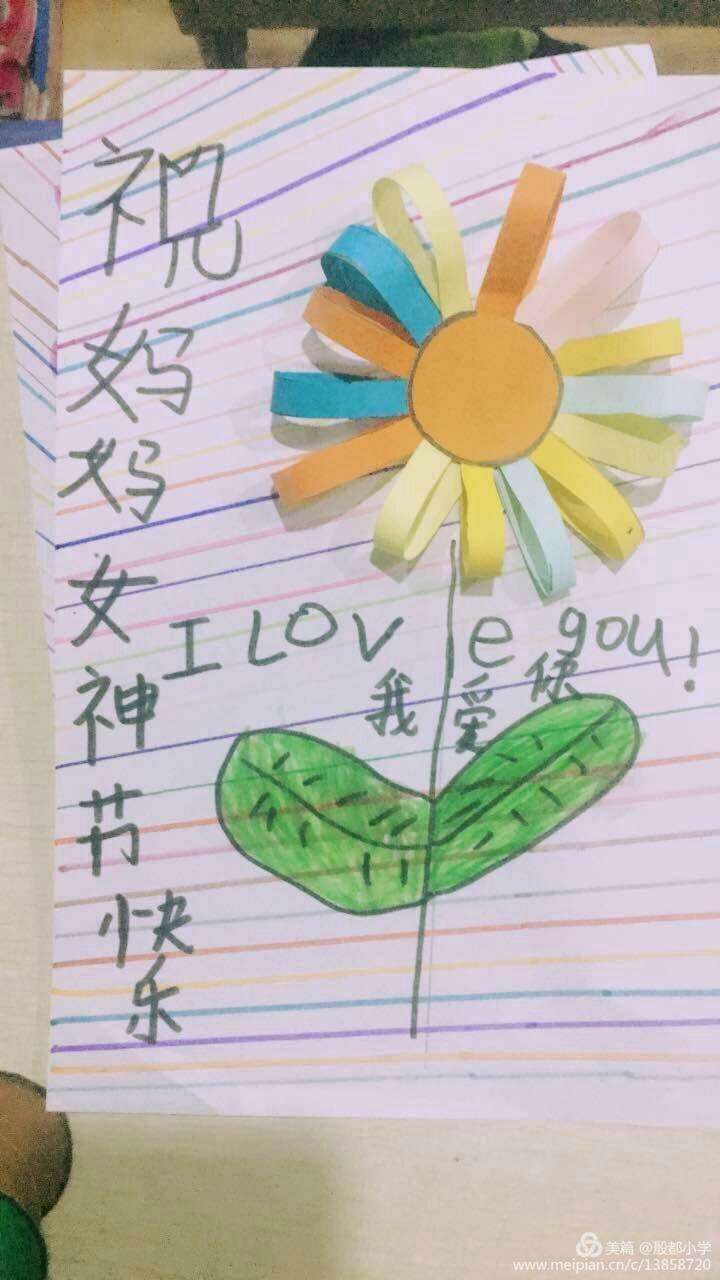 祝妈妈女神节快乐
I LOVe you!
我爱你
美篇 @殷都小学
www.meipian.cn/c/13858720